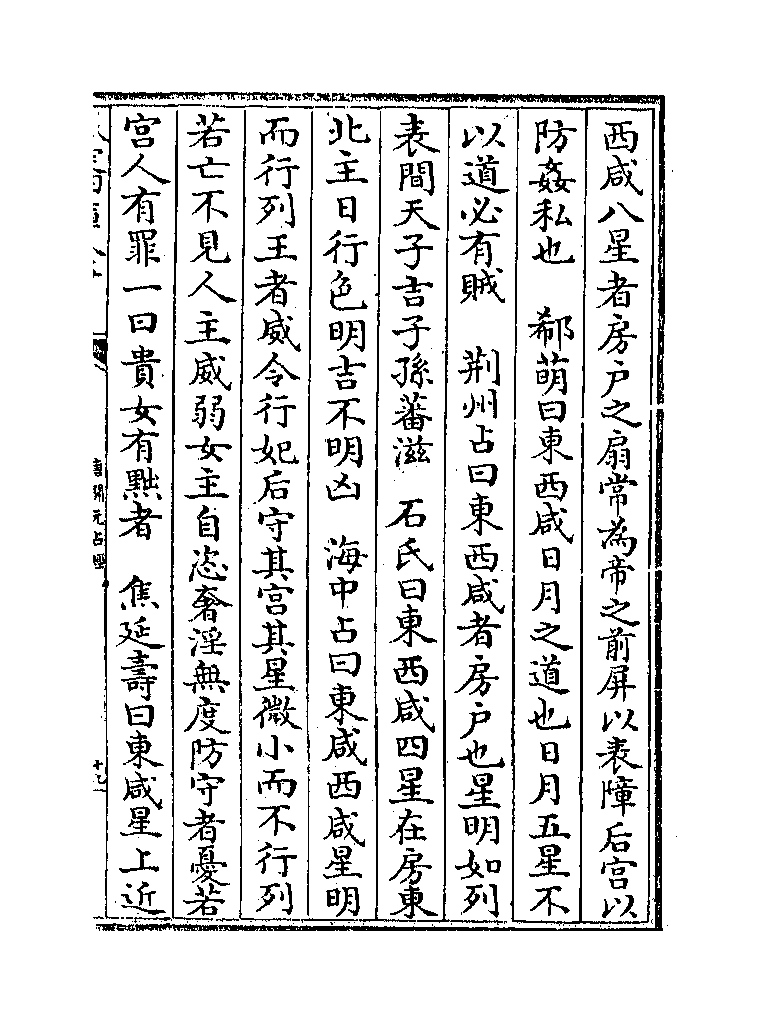 西咸八星者房戶之扇常為帝之前屏以表障后宮以
防姦私也　郗萌曰東西咸日月之道也日月五星不
以道必有賊　荆州占曰東西咸者房戶也星明如列
表間天子吉子孫蕃滋　石氏曰東西咸四星在房東
北主日行色明吉不明凶　海中占曰東咸西咸星明
而行列王者威令行妃后守其宫其星微小而不行列
若亡不見人主威弱女主自恣奢淫無度防守者憂若
宫人有罪一曰貴女有黜者　焦延壽曰東咸星上近
唐開元占經
十九